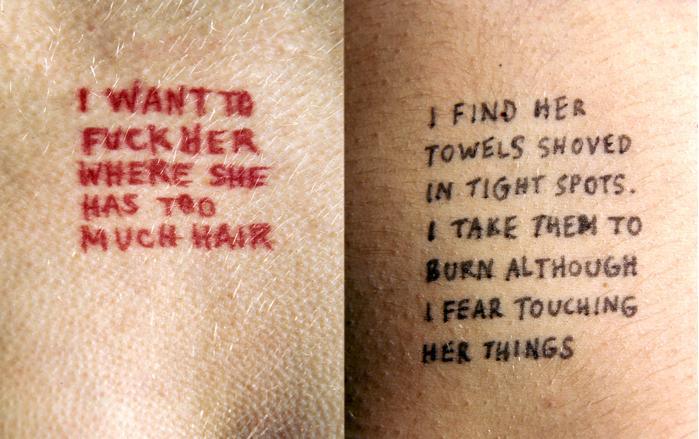 I WANT TO
FUCK HER
WHERE SHE
HAS TOO
MUCH HAIR
I FIND HER
TOWELS SHOVED
IN TIGHT SPOTS.
I TAKE THEM TO
BURN ALTHOUGH
I FEAR TOUCHING
HER THINGS